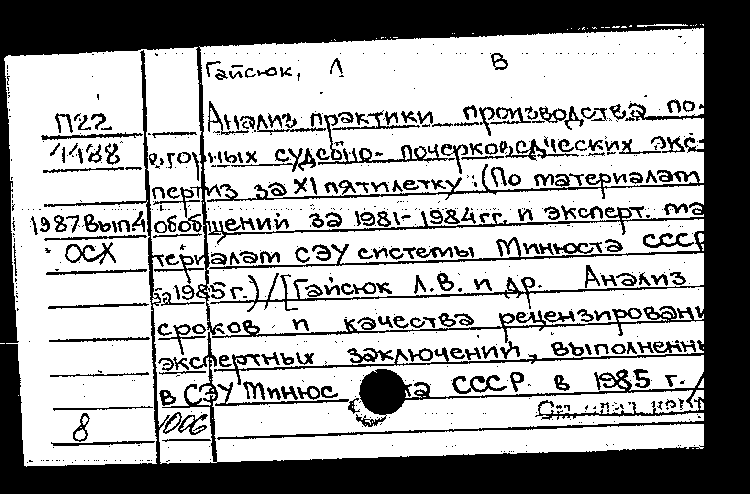 Гайсюк, Л В
П22 Анализ практики производства по-
4488 вторных судебно-почерковедческих экс-
пертиз за XI пятилетку: (По материалам
1987 Вып.4 обобщений за 1981-1984 гг. и эксперт. ма
ОСХ териалам СЭУ системы Минюста СССР
за 1985 г.)/[Гайсюк Л.В. и др. Анализ
сроков и качества рецензировани
экспертных заключений, выполненн
в СЭУ Минюста СССР в 1985 г. /
8 1006 См.